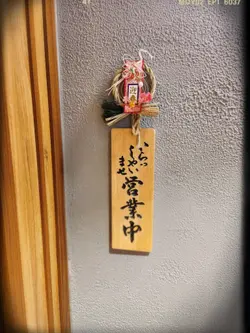 いらっ
しゃいませ
営業中